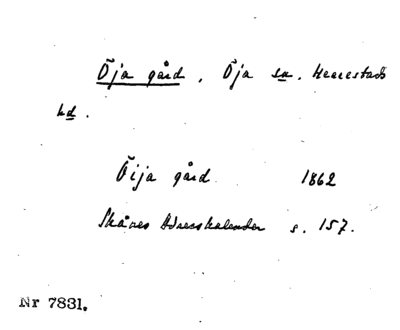 Öja gård, Öja sn. Herrestads
hd.
Öija gård 1862
Skånes Adresskalender s. 157.
Nr 7831.